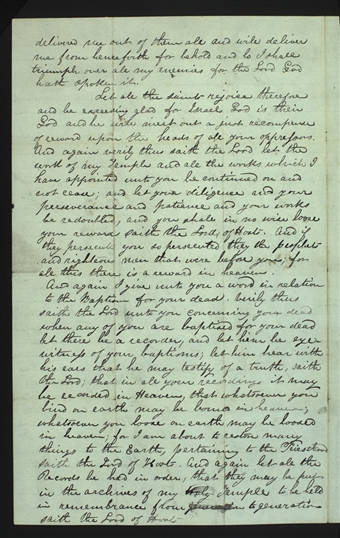 delivered me out of them all and will deliver
me from henceforth for behold and lo I shall
triumph over all my enemies for the Lord God
hath spoken it.
Let all the saints rejoice therefore
and be exceeding glad for Israels God is their
God and he will meet out a just recompense
of reward upon the heads of all your oppressors.
And again verily thus saith the Lord let the
work of my Temple and all the works which I
have appointed unto you be continued on and
not cease; and let your diligence and your
perseverance and patience and your works
be redoubled, and you shall in no wise loose
your reward saith the Lord of Hosts. And if
they persecute you so persecuted they the prophets
and righteous men that were before you, for
all this there is a reward in heaven.
And again I give unto you a word in relation
to the Baptism for your dead. Verily thus
saith the Lord unto you concerning your dead
when any of you are baptised for your dead
let there be a recorder, and let him be eye
witness of your baptisms; let him hear with
his ears that he may testify of a truth, saith
the Lord; that in all your recordings it may
be recorded in Heaven, that whatsoever you
bind on earth may be bound in heaven;
whatsoever you loose on earth may be loosed
in heaven; for I am about to restore many
things to the Earth, pertaining to the Priesthood
saith the Lord of Hosts. And again let all the
Records be had in order, that they may be put
in the archives of my Holy Temple to be held
in remembrance from to generation
saith the Lord of Hosts